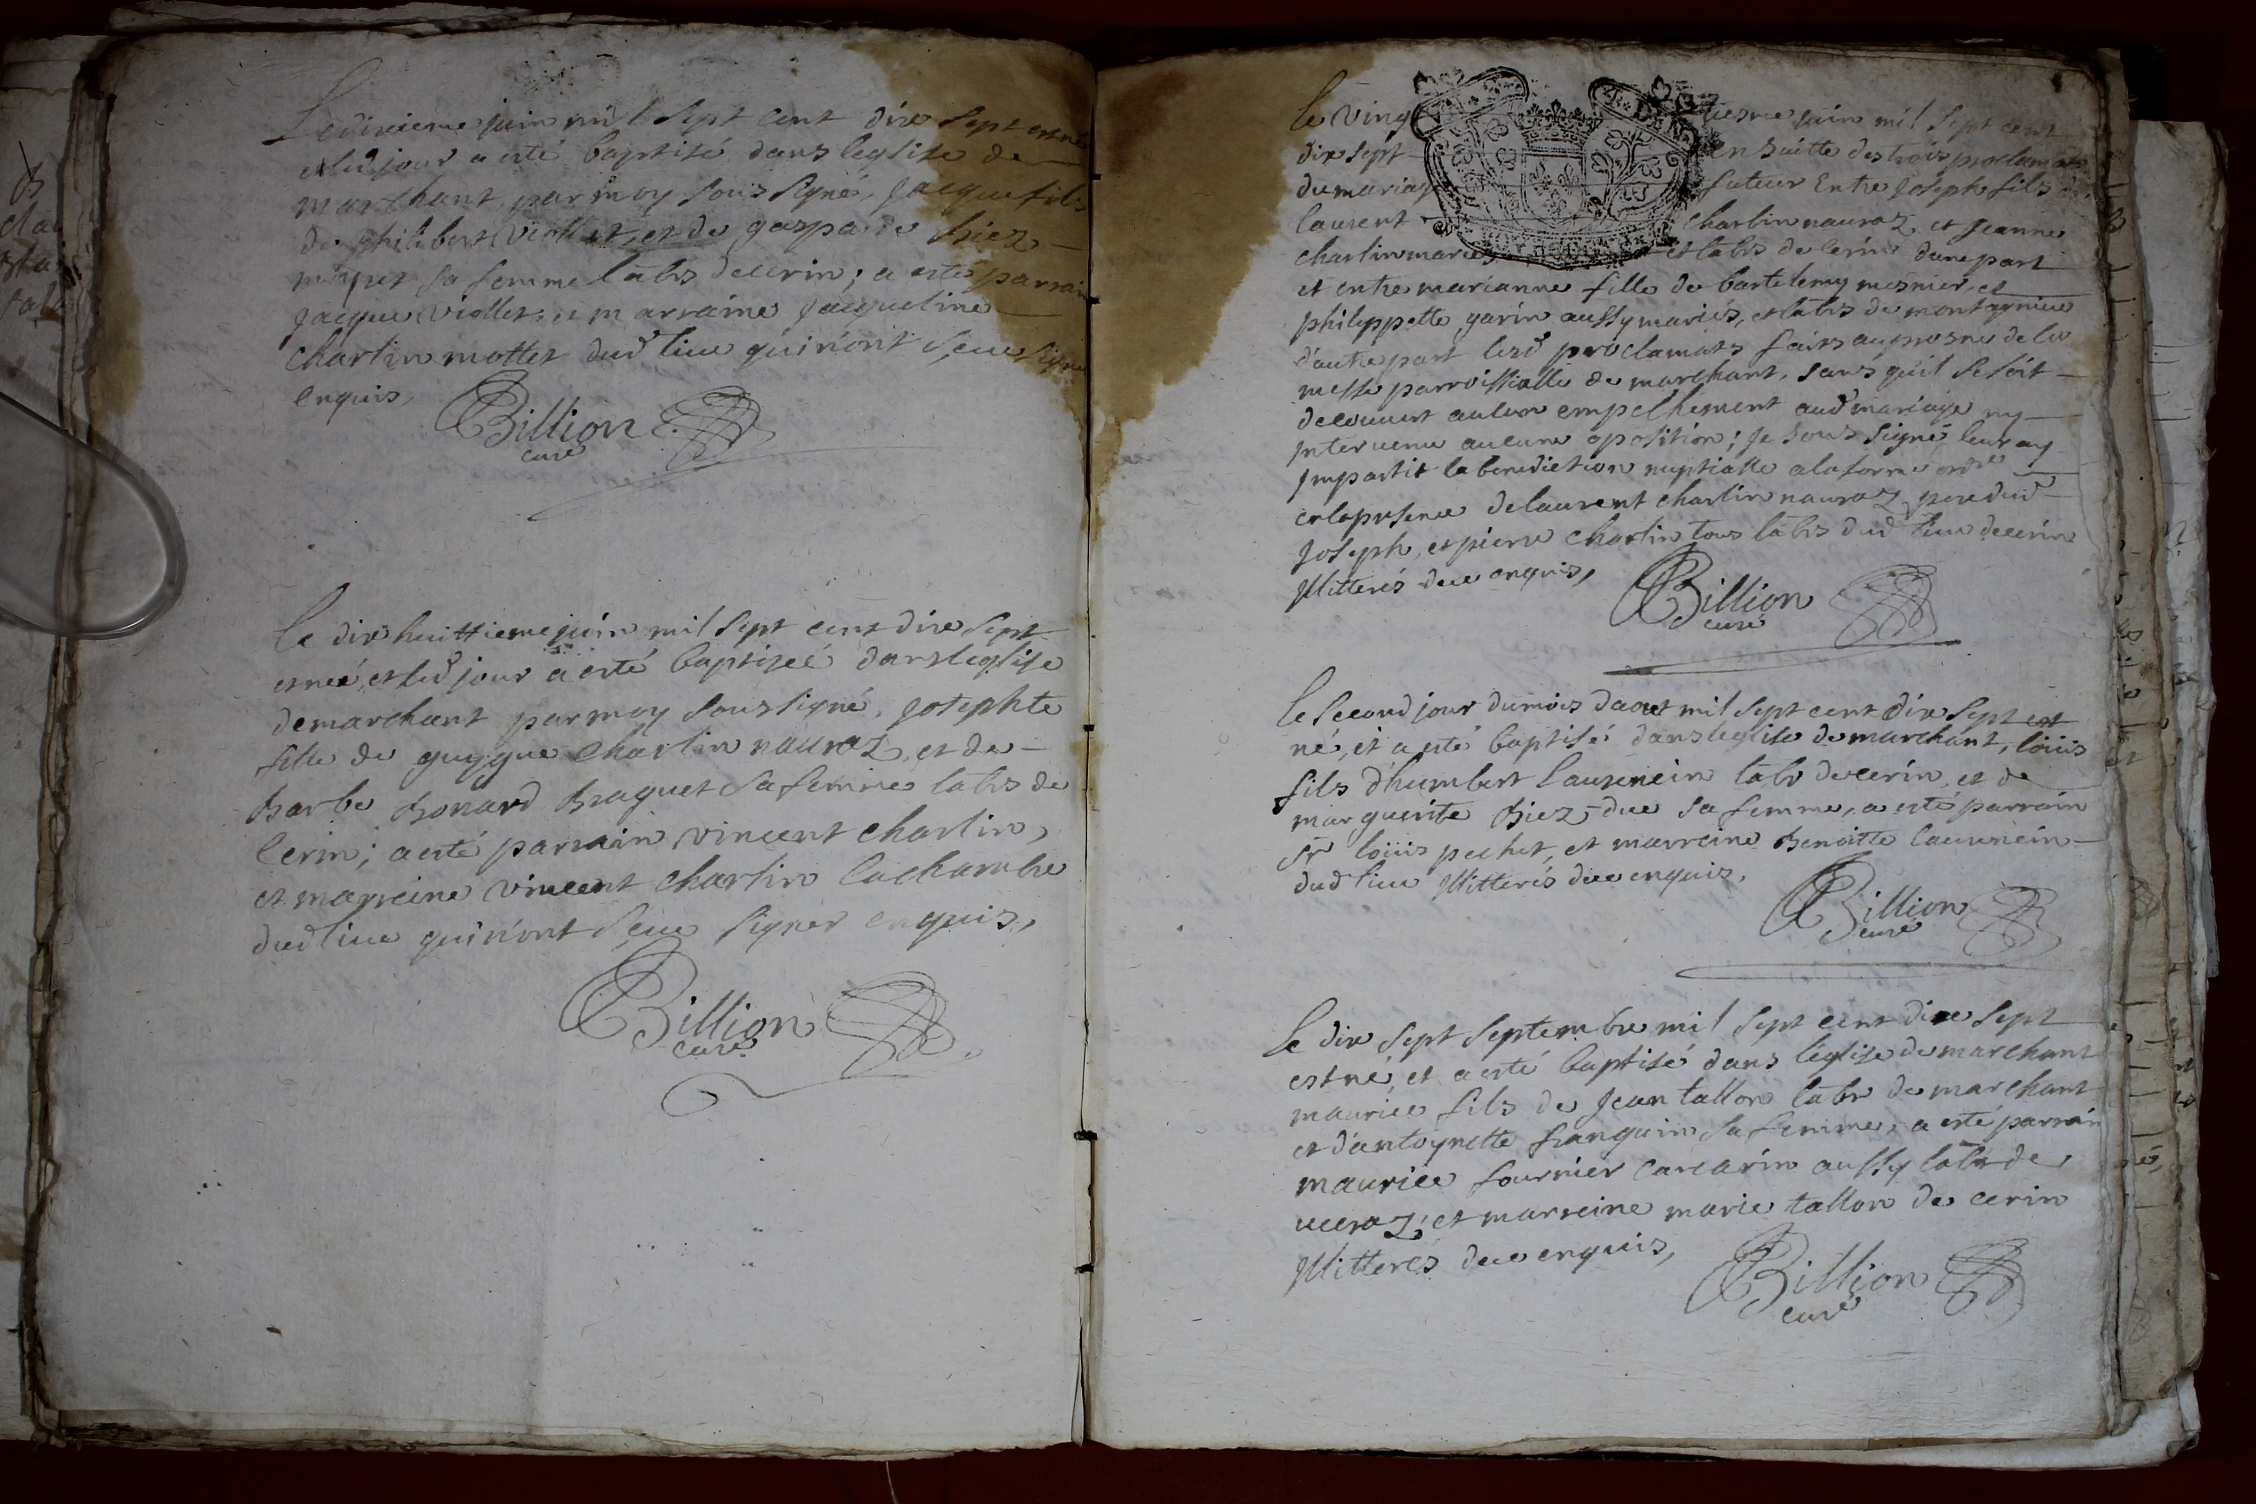 Le dixieme juin mil sept cent dix sept est né
et led jour a esté baptisé dans leglise de
marchant par moy sous signé, Jacque fils
de philibert viollet, et de gasparde biez
sa femme labrs de cerin; a esté parrain
Jacque viollet, et marraine Jacqueline
charlin mottet dud lieu qui n'ont sceu signer
enquis,
Billion
curé
le dix huittieme juin mil sept cent dix sept
est neé, et led jour a esté baptiseé dans leglise
de marchant par moy sous signé, Josephte
fille de guygue charlin nauroz, et de
Barbe Bonard Braquet sa femme labrs de
Cerin; a esté parrain vincent charlin,
et marreine vincent charlin lachambre
dud lieu qui n'ont sceu signer enquis,
Billion
curé
le vingt tiesme juin mil sept cent
dix sept en suitte des trois proclamats
du mariage futeur Entre Joseph fils de
laurent charlin nauroz et Jeanne
charlin mariés et labrs de Cerin dune part
et entre marianne fille de bartelemy mesnier et
philippette garin aussy mariés, et labrs de montagnieu
d'autre part lesd proclamats faits au prosne de la
messe parroissialle de marchant, sans qu'il se soit
decouvert aulcun empeschement aud mariage ny
intervenu aucune oposition; Je sous signé leur ay
impartit la benediction nuptialle a la forme ordre
en la presence de laurent charlin nauroz pere dud
Joseph, et pierre charlin tous labrs dud lieu de cerin
illitterés de ce enquis,
Billion
curé
le second jour du mois daout mil sept cent dix sept est
né, et a esté baptisé dans leglise de marchant, loüis
fils d'humbert laurencin labr de cerin, et de
marguerite Biez-due sa femme, a esté parrain
sr loüis pechet, et marreine Benoitte laurencin
dud lieu illitterés de ce enquis,
Billion
curé
le dix sept septembre mil sept cent dix sept
est né, et a esté baptisé dans l'eglise de marchant
maurice fils de Jean tallon labr de marchant
et d'antoynette franquin sa femme, a esté parrain
maurice fournier cararin aussy labr de
et marreine marie tallon de cerin
illitterés de ce enquis,
Billion
curé